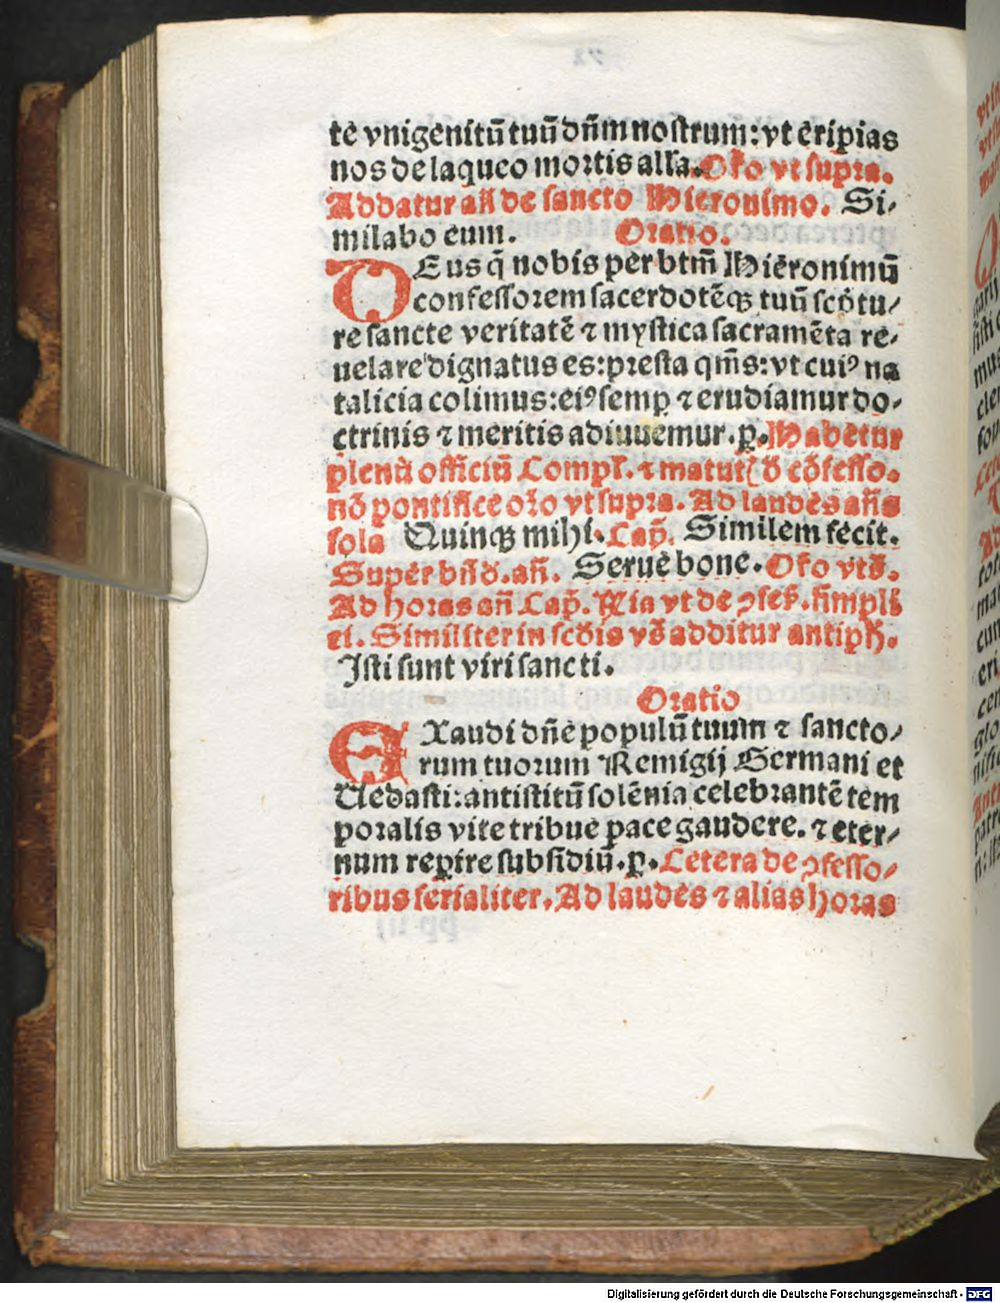 te vnigenitū tuū dñm nostrum: vt eripias
nos de laqueo mortis alła. Oŕo vt supra.
Addatur añ de sancto Hieronimo. Si-
milabo eum. Oratio.
DEus q̄ nobis per btm̄ Hieronimū
confessorem sacerdotēqꝫ tuū scḋtu/
re sancte veritatē ⁊ mystica sacramēta re-
uelare dignatus es: presta qm̄s: vt cuiꝰ na
talicia colimus: eiꝰ semꝑ ⁊ erudiamur do-
ctrinis ⁊ meritis adiuuemur. ꝑ. Habetur
plenū officiū Compŕ. ⁊ matut̄ d̄ cōfesso-
nō pontifice oŕo vt supra. Ad laudes añs
sola Quinqꝫ mihi. Cap̄. Similem fecit.
Super bñd. añ. Serue bone. Oŕo vts̄.
Ad horas añ Cap̄. Ria vt de ꝯfes̄. simpli
ci. Similiter in scḋis vs̄ additur antiph.
Isti sunt viri sancti.
Oratio
EXaudi dñe populū tuum ⁊ sancto/
rum tuorum Remigij Germani et
Uedasti: antistitū solēnia celebrantē tem
poralis vite tribue pace gaudere. ⁊ eter/
num reꝑire subsidiū. ꝑ. Cetera de ꝯfesso/
ribus ferialiter. Ad laudes ⁊ alias horas
Digitalisierung gefördert durch die Deutsche Forschungsgemeinschaft - DFG